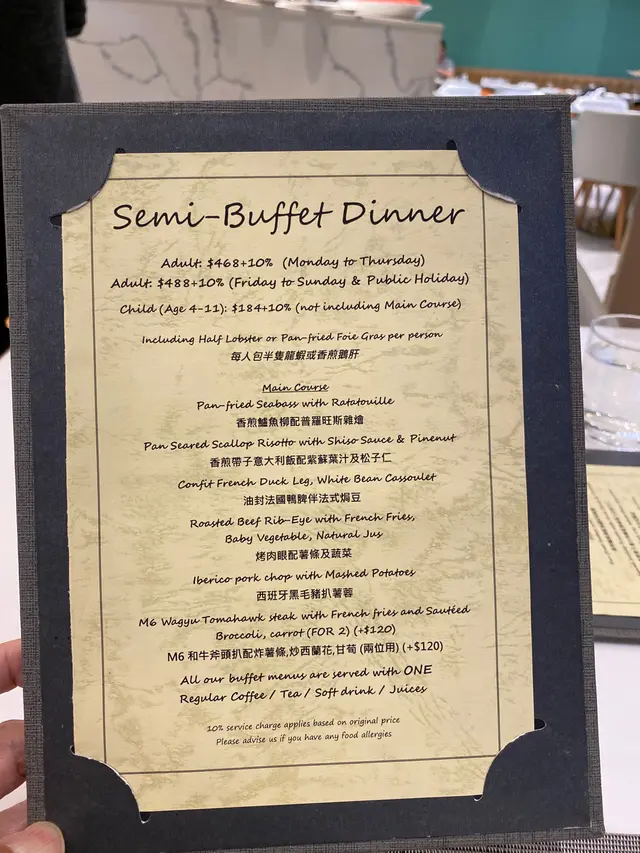 Semi-Buffet Dinner
Adult: $468+10% (Monday to Thursday)
Adult: $488+10% (Friday to Sunday & Public Holiday)
Child (Age 4-11): $184+10% (not including Main Course)
Including Half Lobster or Pan-fried Foie Gras per person
每人包半隻龍蝦或香煎鵝肝
Main Course
Pan-fried Seabass with Ratatouille
香煎鱸魚柳配普羅旺斯雜燴
Pan Seared Scallop Risotto with Shiso Sauce & Pinenut
香煎帶子意大利飯配紫蘇葉汁及松子仁
Confit French Duck Leg, White Bean Cassoulet
油封法國鴨脾伴法式焗豆
Roasted Beef Rib-Eye with French Fries,
Baby Vegetable, Natural Jus
烤肉眼配薯條及蔬菜
Iberico pork chop with Mashed Potatoes
西班牙黑毛豬扒薯蓉
M6 Wagyu Tomahawk steak with French fries and Sautéed
Broccoli, carrot (FOR 2) (+$120)
M6 和牛斧頭扒配炸薯條,炒西蘭花,甘荀 (兩位用) (+$120)
All our buffet menus are served with ONE
Regular Coffee / Tea / Soft drink / Juices
10% service charge applies based on original price
Please advise us if you have any food allergies